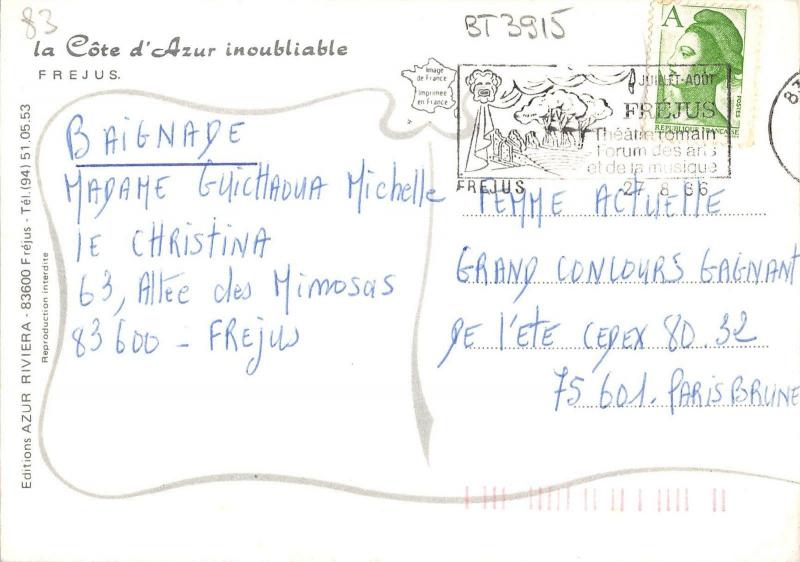 83
BT 3915
la Côte d'Azur inoubliable
FREJUS.
Image
de France
Imprimée
en France
A
JUILLET-AOÛT
FRÉJUS
Théâtre romain
Forum des arts
et de la musique
FREJUS 27 8 86
POSTES
REPUBLIQUE FRANCAISE
BAIGNADE
MADAME GUICHAOUA Michelle
LE CHRISTINA
63, Allée des Mimosas
83 600 - FREJUS
FEMME ACTUELLE
GRAND CONCOURS GAGNANT
DE L'ETE CEDEX 80.32
75 601. PARIS BRUNE
Editions AZUR RIVIERA - 83600 Fréjus - Tél.(94) 51.05.53
Reproduction interdite